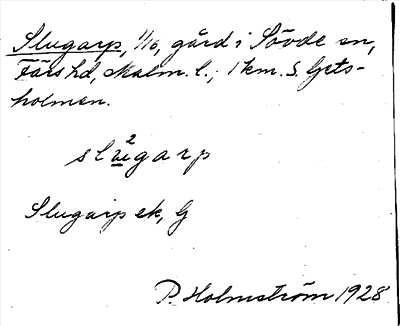 Slugarp, 1/16, gård i Sövde sn,
Färs hd, Malm. l.; 1 km. S. Gets-
holmen.
2
slugarp
Slugarp ek, G
P. Holmström 1928